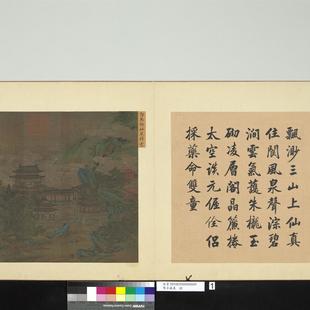 飄渺三山上仙真
住閬風泉聲淙碧
澗雲氣護朱櫳玉
砌凌層閣晶簾捲
太空談元偓佺侶
採藥命雙童
1